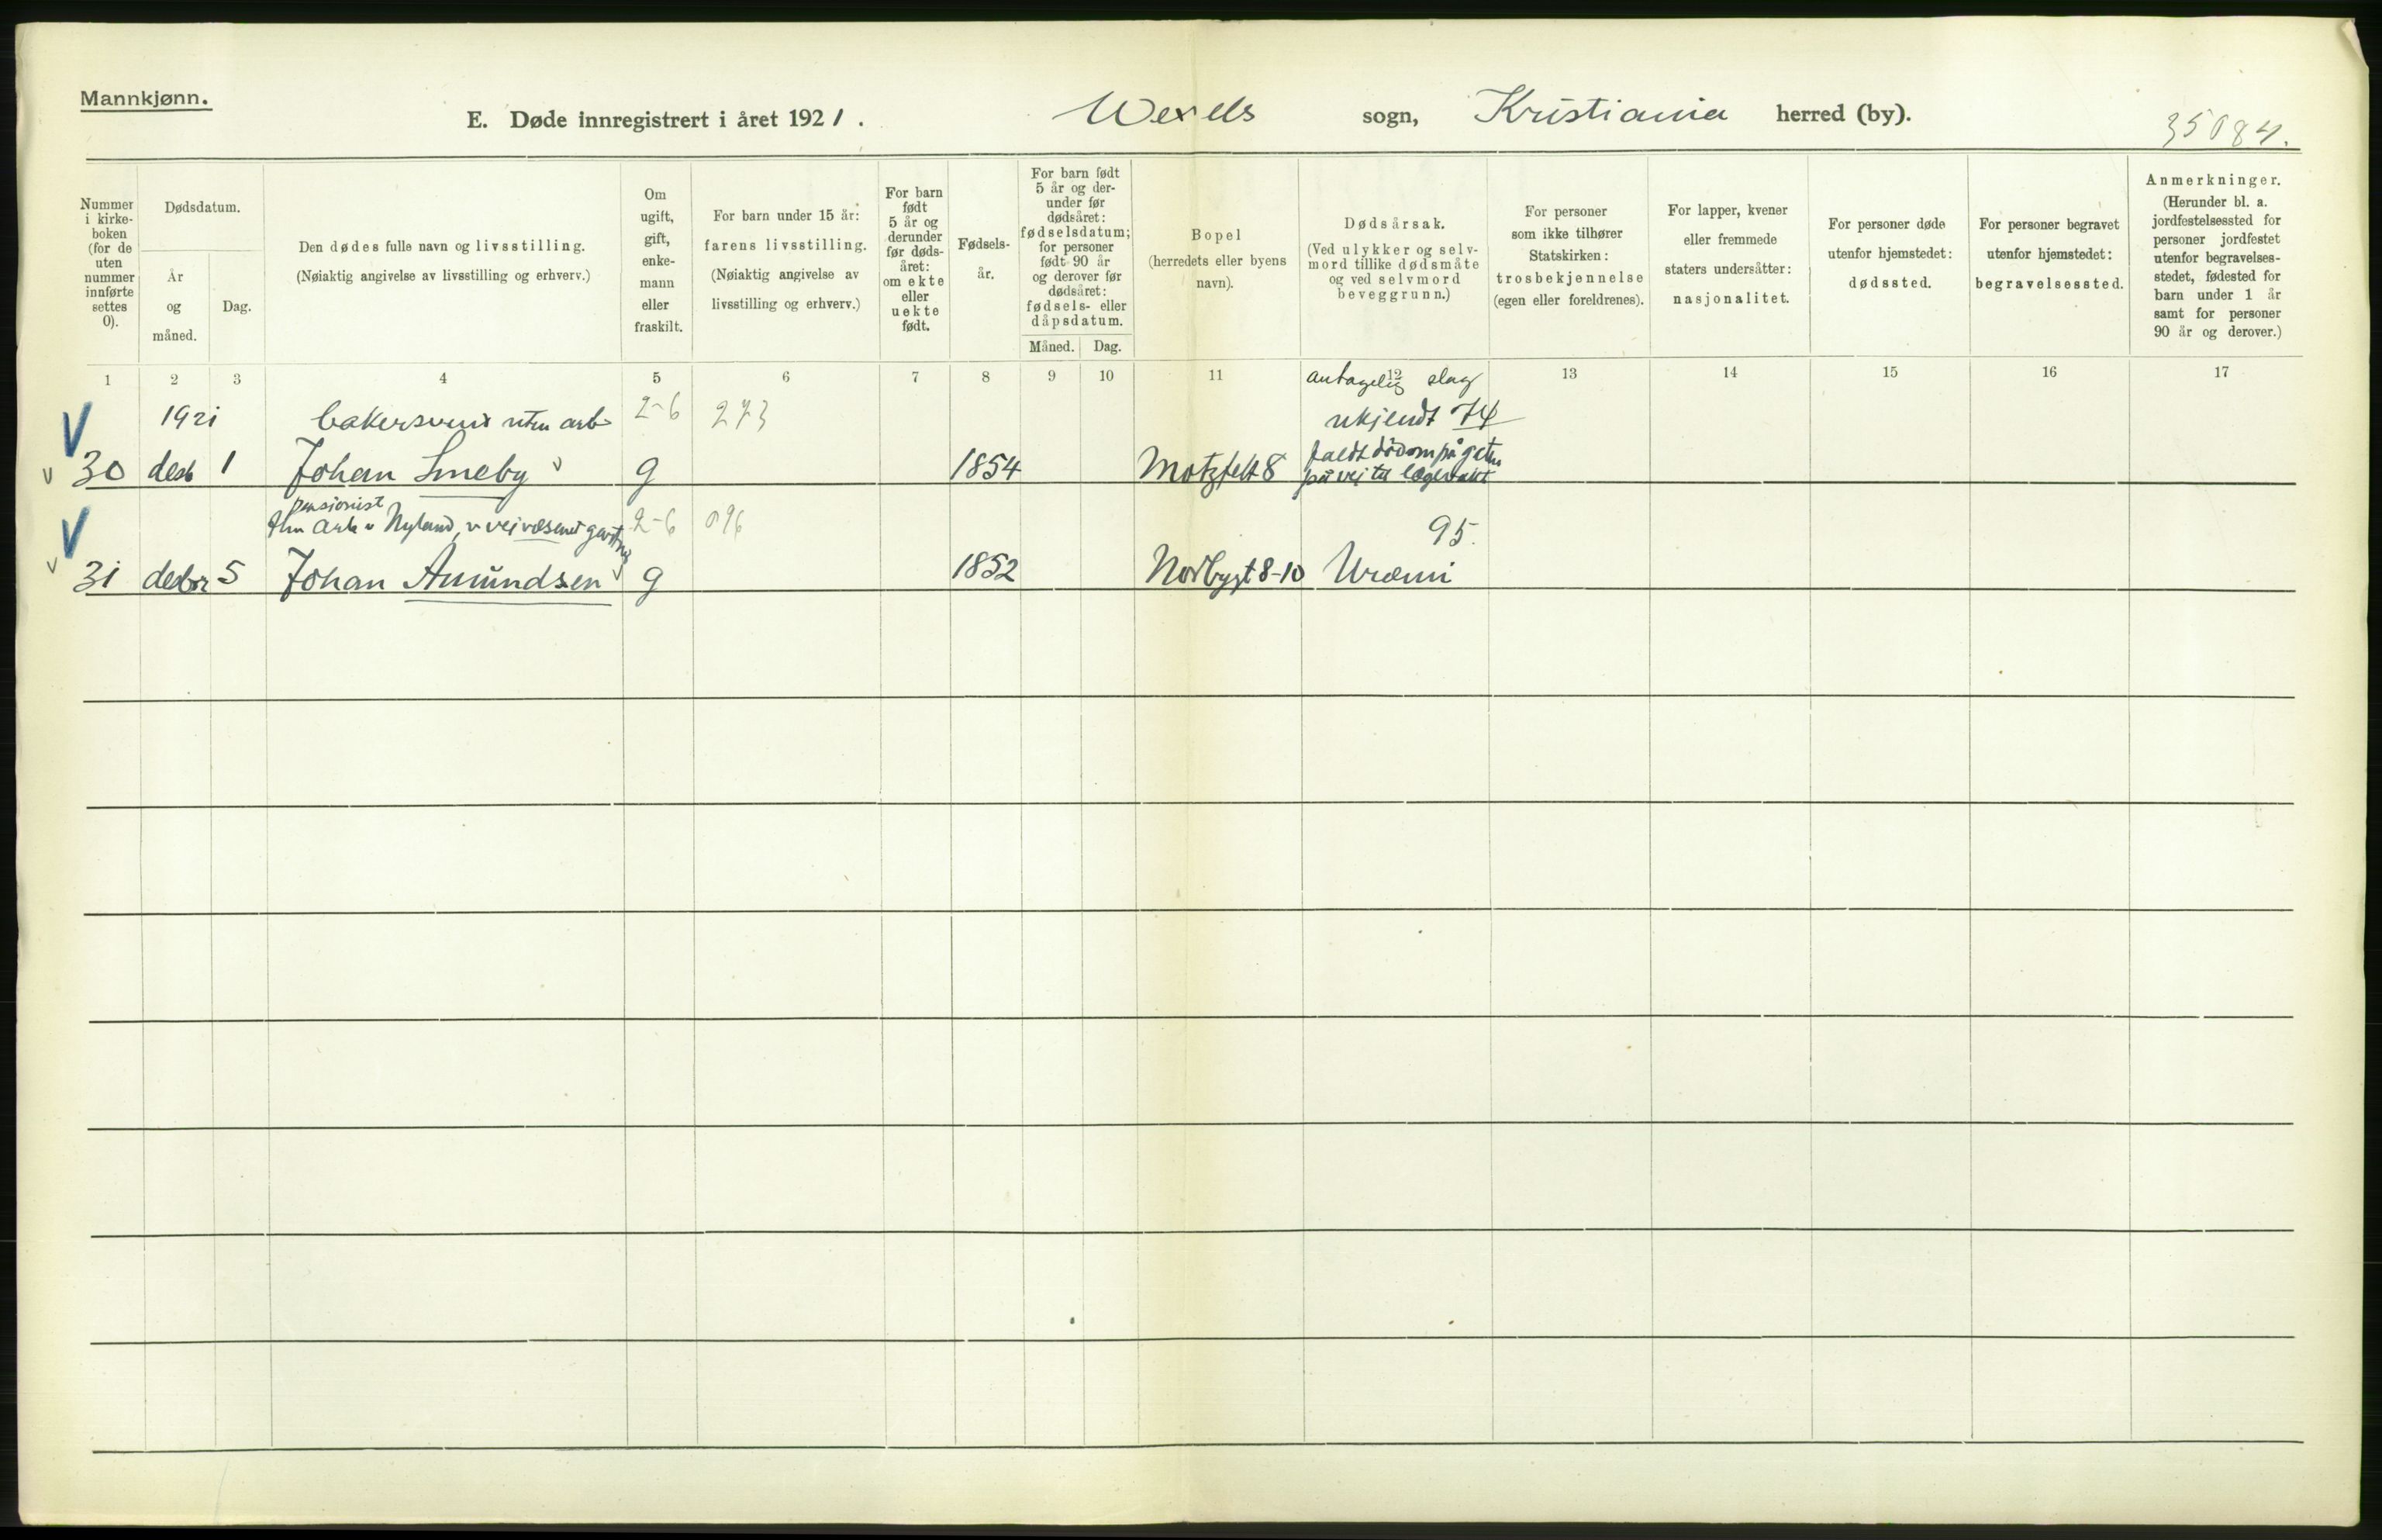 Mannkjønn.
E. Døde innregistrert i året 1921. Wexels sogn, Kristiania herred (by).
35084.
Nummer i kirke-boken (for de uten nummer innførte settes 0).
Dødsdatum.
År og måned.
Dag.
Den dødes fulle navn og livsstilling.
(Nøiaktig angivelse av livsstilling og erhverv.)
Om ugift, gift, enke-mann eller fraskilt.
For barn under 15 år:
farens livsstilling.
(Nøiaktig angivelse av
livsstilling og erhverv.)
For barn født 5 år og derunder før døds-året: om ekte eller uekte født.
Fødsels-år.
For barn født 5 år og der-under før dødsåret: fødselsdatum; for personer født 90 år og derover før dødsåret: fødsels- eller dåpsdatum.
Måned. Dag.
Bopel
(herredets eller byens
navn).
Dødsårsak.
(Ved ulykker og selv-
mord tillike dødsmåte
og ved selvmord
beveggrunn.)
For personer
som ikke tilhører
Statskirken:
trosbekjennelse
(egen eller foreldrenes).
For lapper, kvener
eller fremmede
staters undersåtter:
nasjonalitet.
For personer døde
utenfor hjemstedet:
dødssted.
For personer begravet
utenfor hjemstedet:
begravelsessted.
Anmerkninger.
(Herunder bl. a.
jordfestelsessted for
personer jordfestet
utenfor begravelses-
stedet, fødested for
barn under 1 år
samt for personer
90 år og derover.)
1 2 3 4 5 6 7 8 9 10 11 12 13 14 15 16 17
antagelig slag
1921 bakersvend uten arb 2-6 273 ukjendt 74
faldt død om på gaten
30 desb 1 Johan Smeby g 1854 Motzfelt 8 på vej til lægevakt
pensionist
arb v Nyland, v veivæsenet 2-6 096 95.
31 desbr 5 Johan Amundsen g 1852 Norbygt 8-10 Uræmi